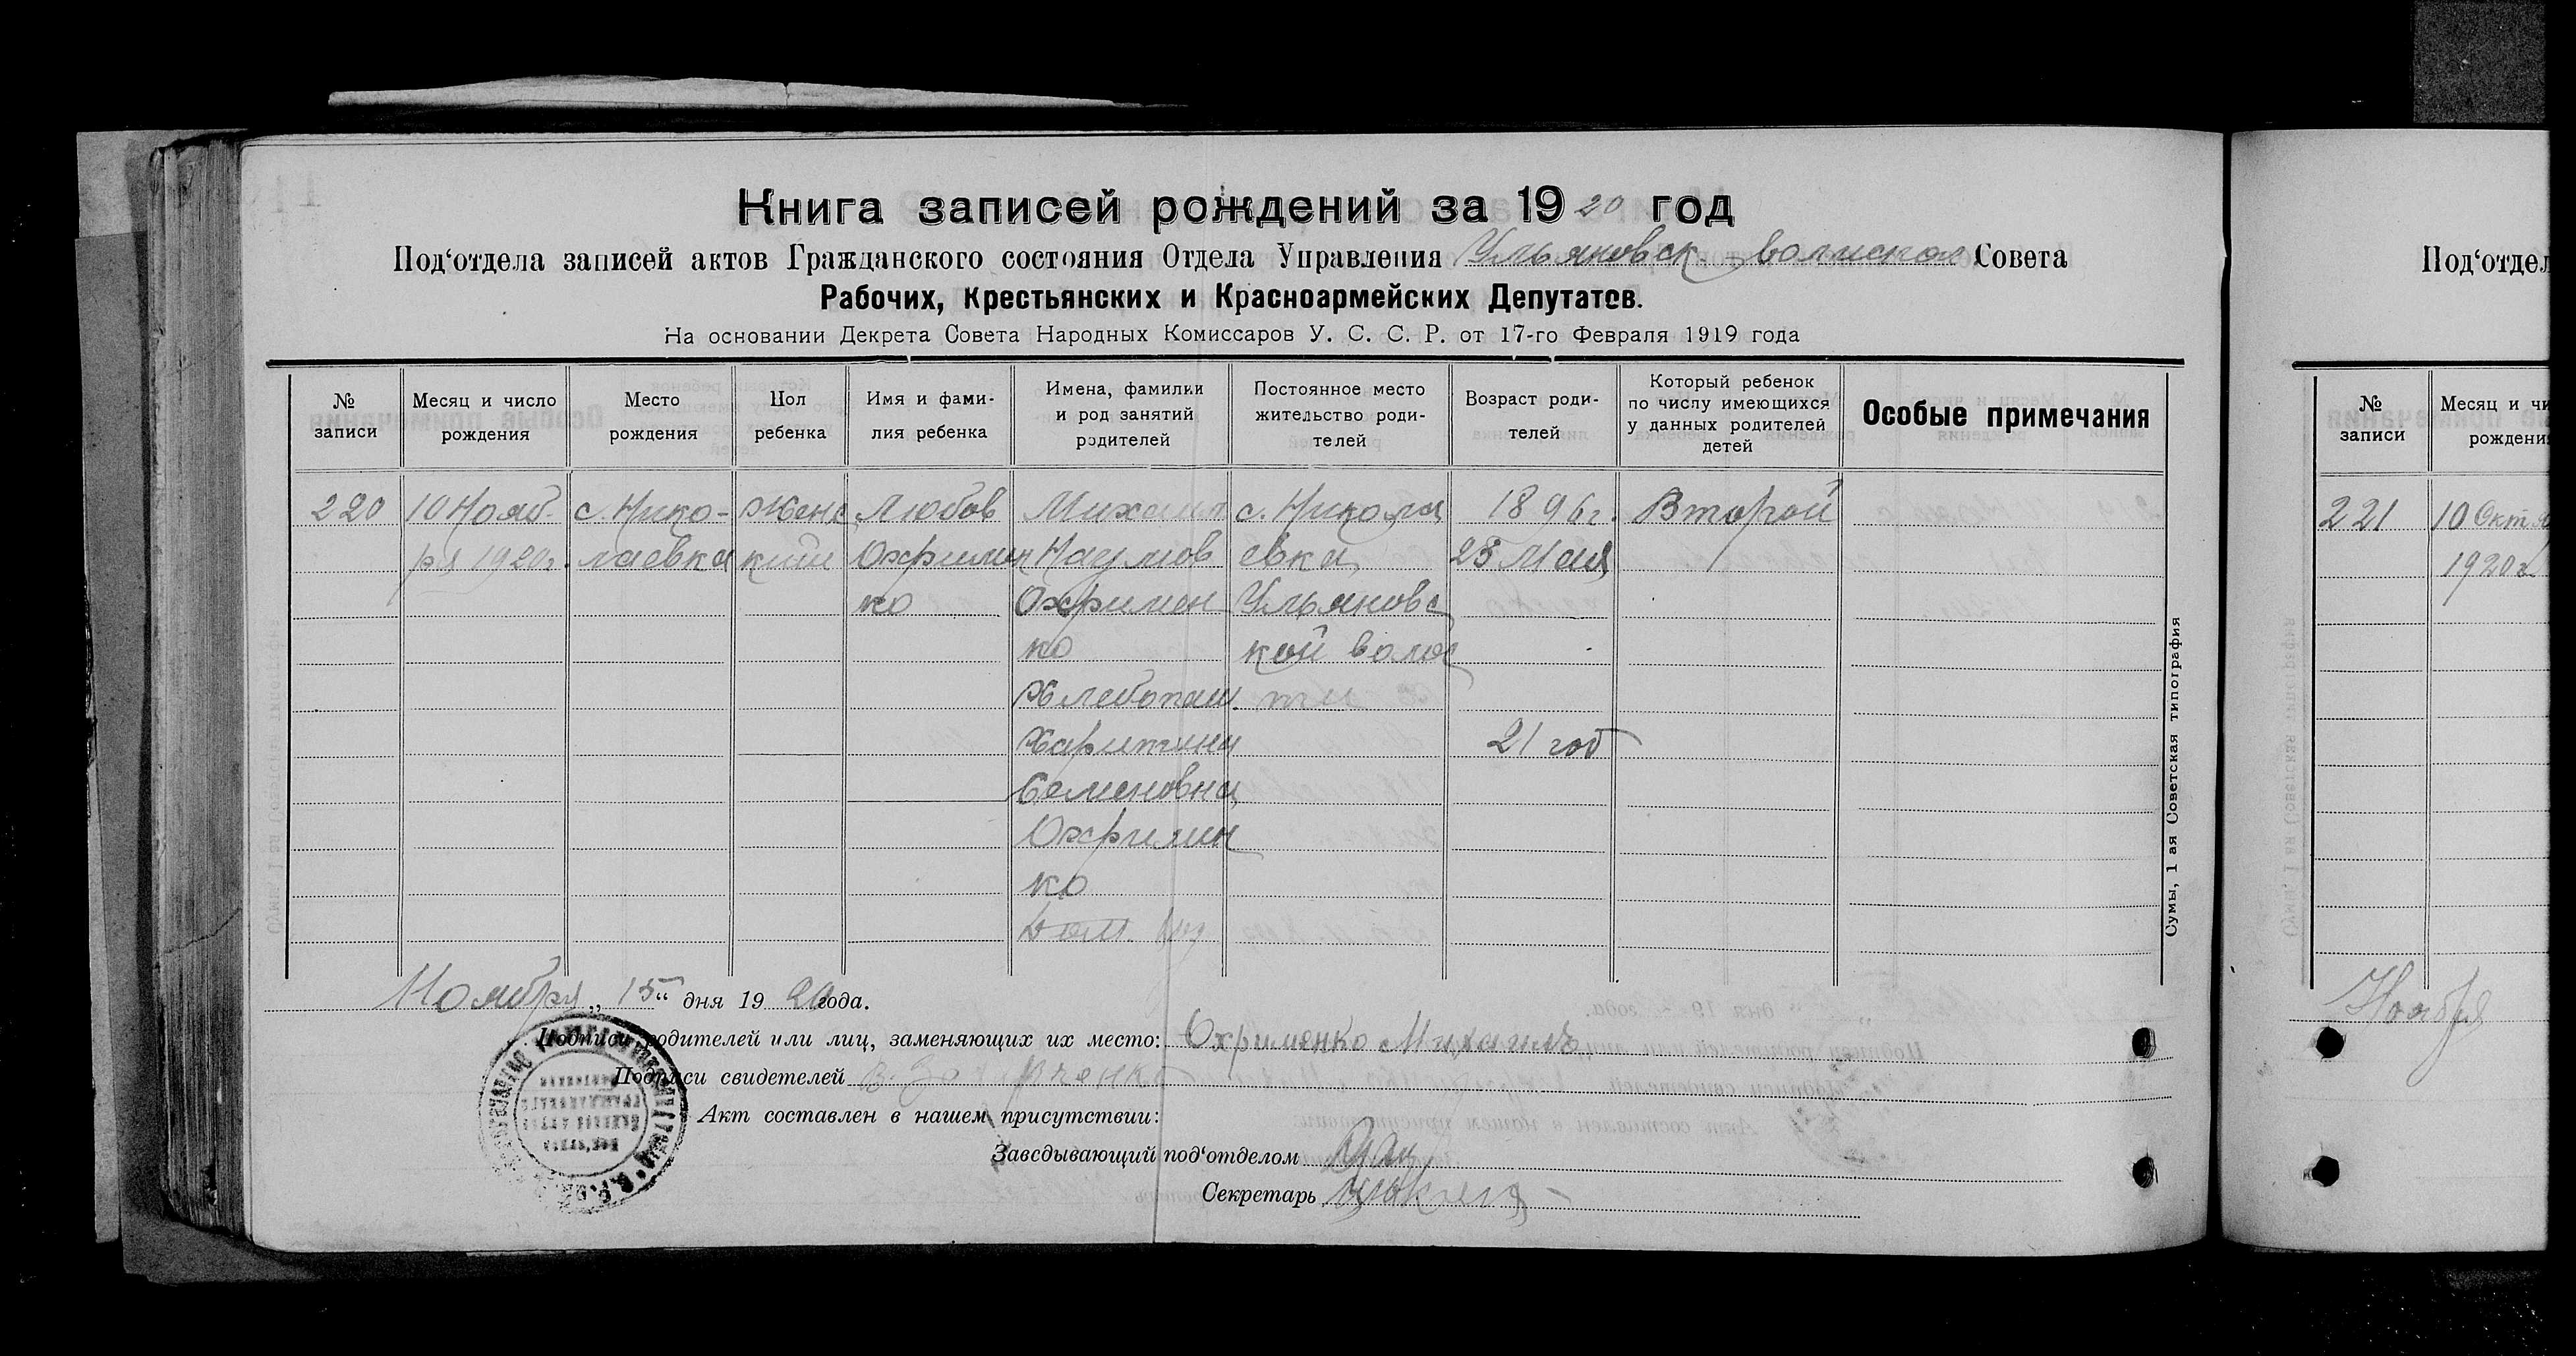 Книга записей рождений за 1920 год
Под'отдела записей актов Гражданского состояния Отдела Управления Ульяновск. волиспол Совета
Рабочих, Крестьянских и Красноармейских Депутатов.
На основании Декрета Совета Народных Комиссаров У. С. С. Р. от 17-го Февраля 1919 года
№ записи
Месяц и число рождения
Место рождения
Пол ребенка
Имя и фами-
лия ребенка
Имена, фамилии
и род занятий
родителей
Постоянное место
жительство роди-
телей
Возраст роди-
телей
Который ребенок
по числу имеющихся
у данных родителей
детей
Особые примечания
220
10 Нояб-
ря 1920г.
с. Нико-
лаевка
Женс
кий
Любов
Охримен
ко
Михаил
Наумов
Охримен
ко
Хлебопаш.
Харитина
Семеновна
Охримен
ко
Дом.
с. Никола
евка
Ульяновс
кой волос
ти
1896г.
25 Мая
21 год
Второй
Ноября „15“ дня 1920 года.
Подписи родителей или лиц, заменяющих их место: Охрименко Михаилъ
Подписи свидетелей
Акт составлен в нашем присутствии:
Заведывающий под'отделом
Секретарь
Сумы, 1 ая Советская типография
Под'отдел
№ записи
Месяц и чи
рождени
221
10 Октя
1920г.
Ноября